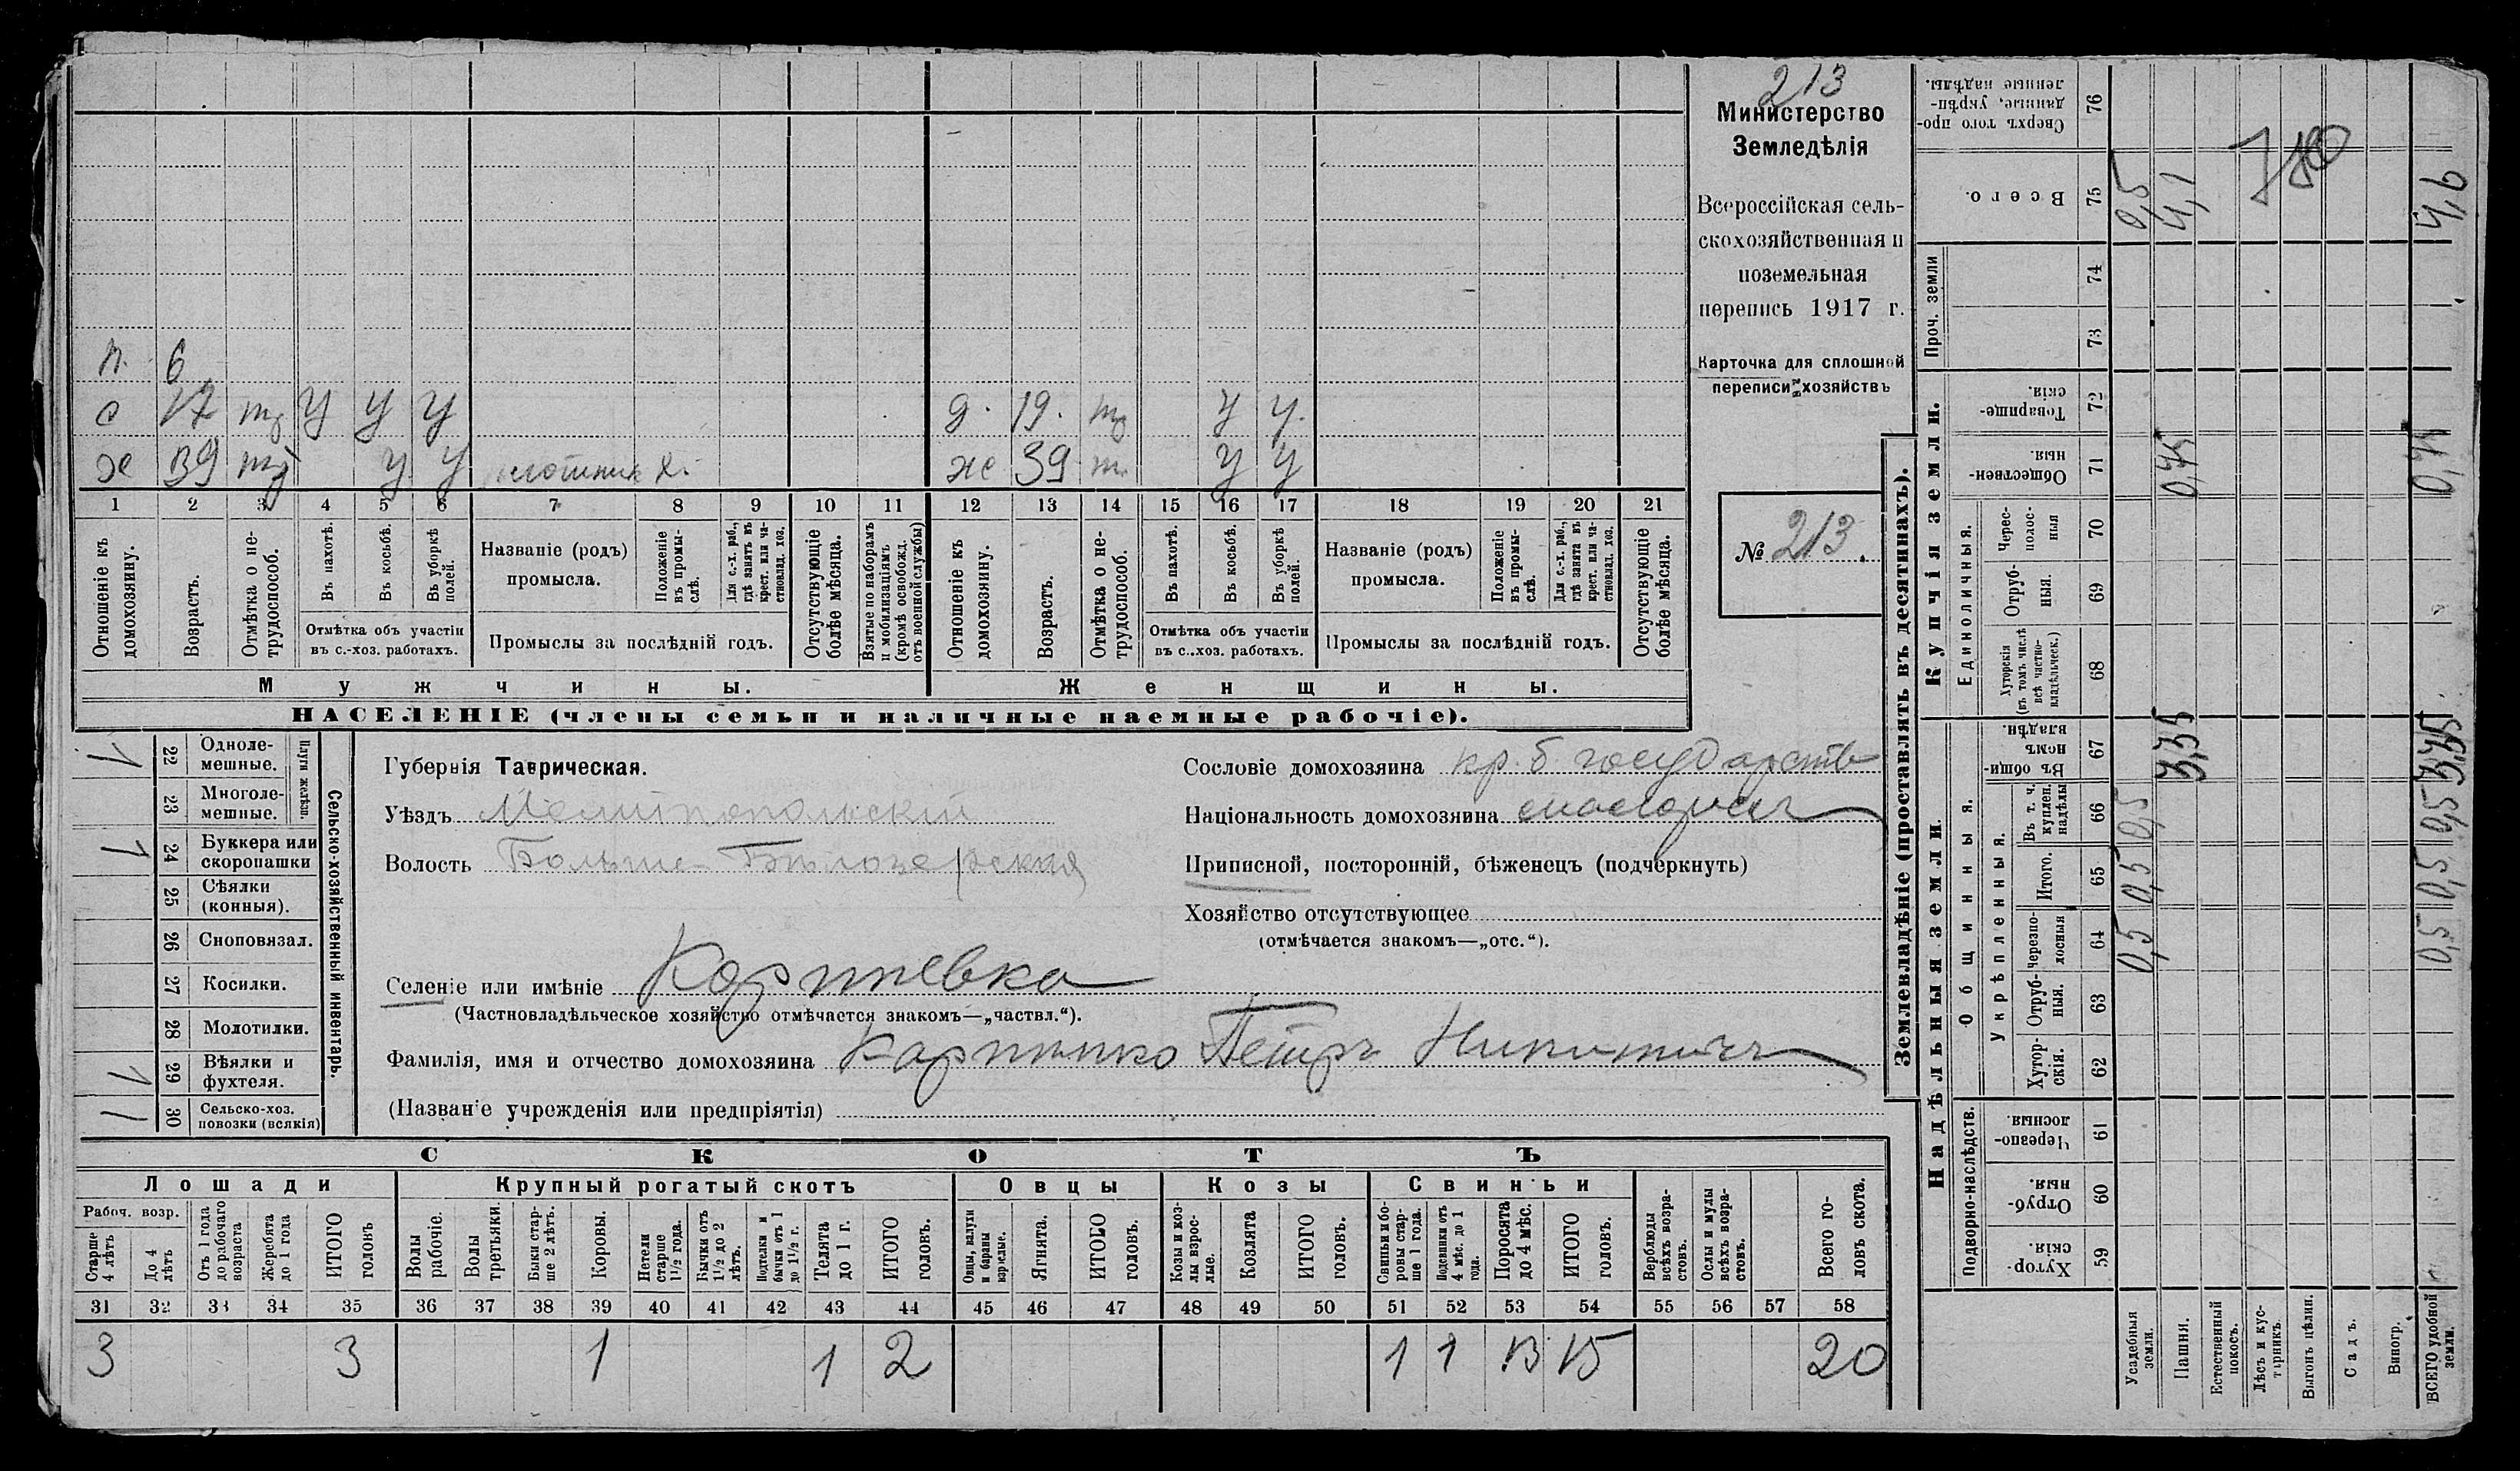 213
Министерство
Земледѣлія
Всероссійская сель-
скохозяйственная и
поземельная
перепись 1917 г.
Карточка для сплошной
переписи хозяйствъ
№ 213.
п. 6
с 17 У У У д. 19. У У.
х 39 У У х. же 39 У У
1 2 3 4 5 6 7 8 9 10 11 12 13 14 15 16 17 18 19 20 21
Отношеніе къ домохозяину.
Возрастъ.
Отмѣтка о не-трудоспособ.
Въ пахотѣ.
Въ косьбѣ.
Въ уборкѣ полей.
Отмѣтка объ участіи
въ с.-хоз. работахъ.
Названіе (родъ)
промысла.
Положеніе въ промы-слѣ.
Для с.-х. раб., гдѣ занятъ въ крест. или ча-стновлад. хоз.
Промыслы за послѣдній годъ.
Отсутствующіе болѣе мѣсяца.
Взятые по наборамъ и мобилизаціямъ (кромѣ освобожд. отъ военной службы)
Отношеніе къ домохозяину.
Возрастъ.
Отмѣтка о не-трудоспособ.
Въ пахотѣ.
Въ косьбѣ.
Въ уборкѣ полей.
Отмѣтка объ участіи
въ с.-хоз. работахъ.
Названіе (родъ)
промысла.
Положеніе въ промы-слѣ.
Для с.-х. раб., гдѣ занята въ крест. или ча-стновлад. хоз.
Промыслы за послѣдній годъ.
Отсутствующіе болѣе мѣсяца.
Мужчины.
Женщины.
НАСЕЛЕНІЕ (члены семьи и наличные наемные рабочіе).
Сельско-хозяйственный инвентарь.
Плуги желѣзн.
22 Одноле-мешные. 1
23 Многоле-мешные.
24 Буккера или скоропашки 1
25 Сѣялки (конныя).
26 Сноповязал.
27 Косилки.
28 Молотилки.
29 Вѣялки и фухтеля. 1
30 Сельско-хоз. повозки (всякія) 1
Губернія Таврическая.
Уѣздъ Мелитопольскій
Волость Больше-Бѣлозерская
Сословіе домохозяина кр. б. государств
Національность домохозяина малороссъ
Приписной, посторонній, бѣженецъ (подчеркнуть)
Хозяйство отсутствующее
(отмѣчается знакомъ—„отс.“).
Селеніе или имѣніе Карпиевка
(Частновладѣльческое хозяйство отмѣчается знакомъ—„частвл.“).
Фамилія, имя и отчество домохозяина Петръ Никитичъ
(Названіе учрежденія или предпріятія)
СКОТЪ
Лошади
Крупный рогатый скотъ
Овцы
Козы
Свиньи
Рабоч. возр.
Старше 4 лѣтъ
До 4 лѣтъ
Отъ 1 года до рабочаго возраста
Жеребята до 1 года
ИТОГО головъ
Волы рабочіе.
Волы третьяки.
Быки стар-ше 2 лѣтъ.
Коровы.
Нетели старше 1½ года.
Бычки отъ 1½ до 2 лѣтъ.
Подтелки и бычки отъ 1 до 1½ г.
Телята до 1 г.
ИТОГО головъ.
Овцы, валухи и бараны взрослые.
Ягнята.
ИТОГО головъ.
Козы и коз-лы взрос-лые.
Козлята
ИТОГО головъ.
Свиньи и бо-ровы стар-ше 1 года.
Подсвинки отъ 4 мѣс. до 1 года.
Поросята до 4 мѣс.
ИТОГО головъ.
Верблюды всѣхъ возра-стовъ.
Ослы и мулы всѣхъ возра-стовъ.
Всего го-ловъ скота.
31 32 33 34 35 36 37 38 39 40 41 42 43 44 45 46 47 48 49 50 51 52 53 54 55 56 57 58
3 3 1 1 2 1 1 13 15 20
Землевладѣніе (проставлять въ десятинахъ).
Надѣльныя земли
Купчія земли.
Проч. земли
Подворно-наслѣдств.
Общинныя.
Укрѣпленныя.
Единоличныя.
Хутор-скія. 59
Отруб-ныя. 60
Черезпо-лосныя 61
Хутор-скія. 62
Отруб-ныя. 63
Черезпо-лосныя 64
Итого. 65
Въ т. ч. куплен. надѣлы 66
Въ общин-номъ владѣн. 67
Хуторскія (въ томъ числѣ всѣ частно-владѣльческ.) 68
Отруб-ныя. 69
Черес-полос-ныя 70
Обществен-ныя. 71
Товарище-скія. 72
73
74
Всего. 75
Сверхъ того про-данные, укрѣп-ленные надѣлы. 76
Усадебныя земли. 0,5 0,5 0,5 0,5
Пашня. 3,35 0,75 4,1
Естественный покосъ.
Лѣсъ и кус-тарникъ.
Выгонъ цѣлин.
Садъ.
Виногр.
ВСЕГО удобной земли. 0,5 0,5 0,5 3,35 0,75 4,6